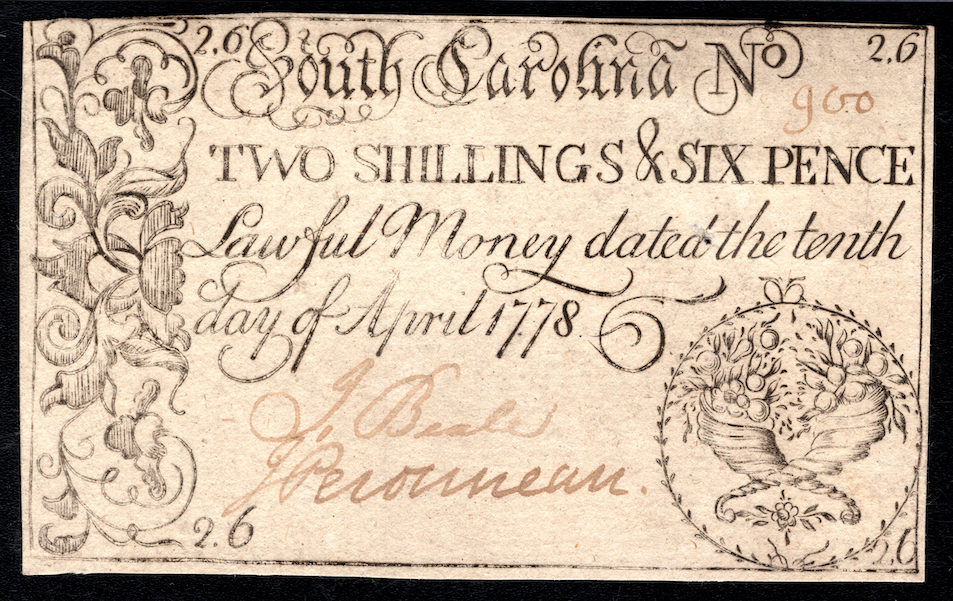 2.6 South Carolina No 2.6
900
TWO SHILLINGS & SIX PENCE
Lawful Money dated the tenth
day of April 1778
J. Beale
J Peronneau.
2.6 2.6